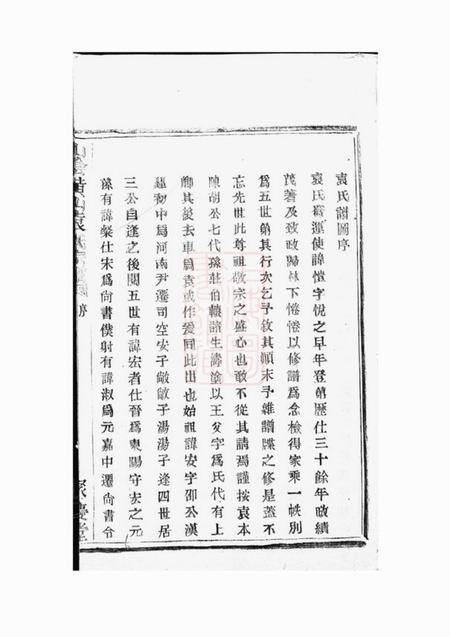 袁氏譜圖序
袁氏諱愷字悅之早年登第歷仕三十餘年政績
茂著及致政歸林下惓惓以修譜爲念檢得家乘一帙別
爲五世第其行次乞予敘其顛末予維譜牒之修是蓋不
忘先世此尊祖敬宗之盛心也敢不從其請焉謹按袁本
陳胡公七代孫莊伯轅諸生濤塗以王父字爲氏代有上
卿其後去車爲袁或作爰同此出也始祖諱安字邵公漢
初中爲河南尹遷司空安子敞敞子湯湯子逢四世居
三公自逢之後閱五世有諱宏者仕晉爲東陽守宏之元
孫有諱粲仕宋爲尚書僕射有諱淑爲元嘉中遷尚書令
序
慶堂